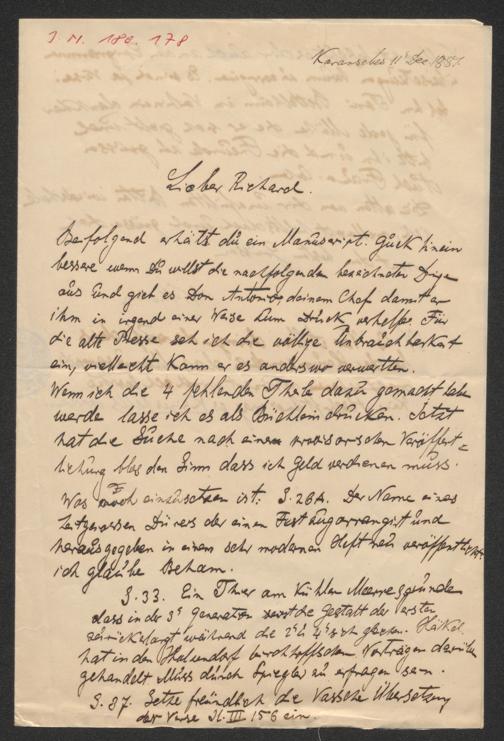 J. N. 180.178
Karansebes 11 Dec 1887.
Lieber Richard.
Beifolgend erhälts dü ein Manuscript. Gück hinein
bessere wenn Dü willst die nachfolgenden bezeichneten Dinge
aus ünd gieb es Don Antonio deinem Chef damit er
ihm in irgend einer Weise züm Drück verhelfe Für
die alte Presse seh ich die völlige Unbraüchbarkeit
ein, vielleicht kann er es anderswo verwerten.
Wenn ich die 4 fehlenden Theile dazü gemacht habe
werde lasse ich es als Büchlein drücken. Jetzt
hat die Süche nach einem provisorischen Veröffent=
lichüng blos den Sinn dass ich Geld verdienen müss.
Was noch einzüsetzen ist: S. 26A. Der Name eines
Zeitgenossen Dürers der einen Festzüg arrangirt ünd
heraüsgegeben in einem sehr modernen Heft neü veröffentlicht.
ich glaübe Beham.
S. 33. Ein Thier am kühlen Meeresgründe
dass in der 3t Generation die Gestalt der ersten
während die 2t ü 4t sich gleichen. Häckel
hat in den Vorträgen darüber
gehandelt Müss dürch Spiegler zü erfragen sein.
S. 87. Setze freündlich die Vossche Übersetzüng
der Verse Il. III 156 ein.